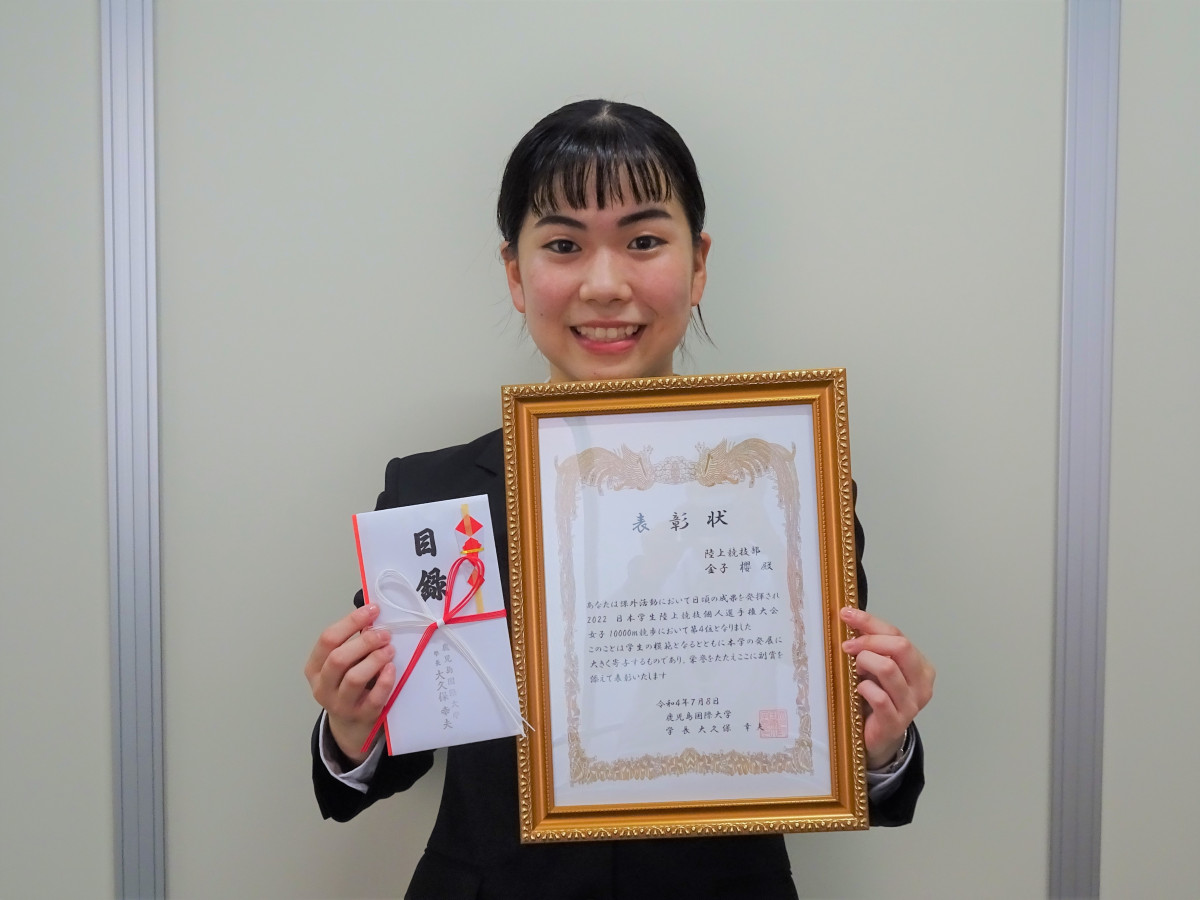 目録
鹿児島国際大学
学長 大久保幸夫
表彰状
陸上競技部
金子 櫻 殿
あなたは課外活動において日頃の成果を発揮され
2022 日本学生陸上競技個人選手権大会
女子10000m競歩において第4位となりました
このことは学生の模範となるとともに本学の発展に
大きく寄与するものであり、栄誉をたたえここに副賞を
添えて表彰いたします
令和4年7月8日
鹿児島国際大学
学長 大久保 幸夫